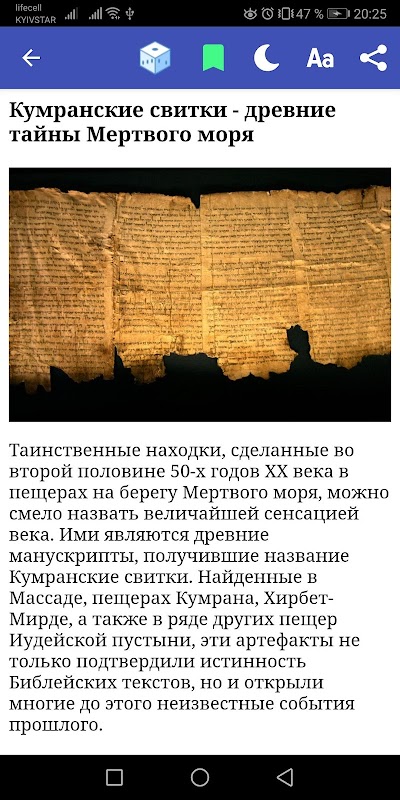 lifecell
KYIVSTAR
47 %
20:25
Aa
Кумранские свитки - древние
тайны Мертвого моря
Таинственные находки, сделанные во
второй половине 50-х годов XX века в
пещерах на берегу Мертвого моря, можно
смело назвать величайшей сенсацией
века. Ими являются древние
манускрипты, получившие название
Кумранские свитки. Найденные в
Массаде, пещерах Кумрана, Хирбет-
Мирде, а также в ряде других пещер
Иудейской пустыни, эти артефакты не
только подтвердили истинность
Библейских текстов, но и открыли
многие до этого неизвестные события
прошлого.